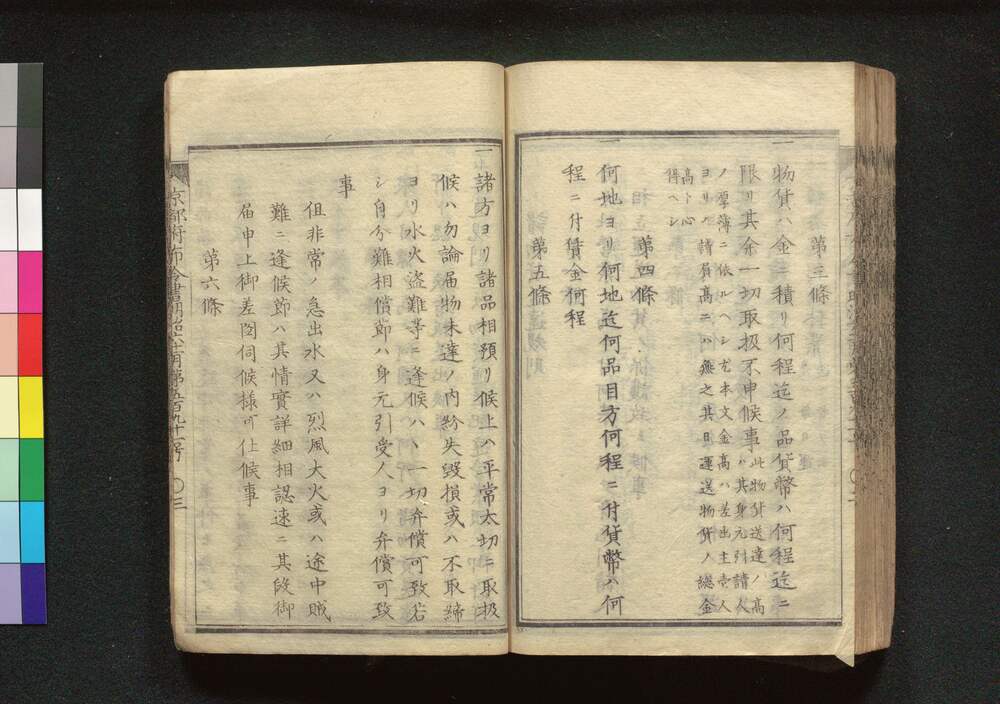 第三條
一物貨ハ金ニ積リ何程迄ノ品貨幣ハ何程迄ニ
限リ其余一切取扱不申候事
此物貨送達ノ高
ハ其身元引請人
ノ厚薄ニ依ルヘシ尤本文金高ハ差出主壱人
ヨリノ請負高ニハ無之其日運送物貨ノ總金
高ト心
得ヘシ
第四條
一何地ヨリ何地迄何品目方何程ニ付貨幣ハ何
程ニ付賃金何程
第五條
一諸方ヨリ諸品相預リ候上ハ平常太切ニ取扱
候ハ勿論届物未達ノ内紛失毀損或ハ不取締
ヨリ水火盗難等ニ逢候ハヽ一切弁償可致若
シ自分難相償節ハ身元引受人ヨリ弁償可致
事
但非常ノ急出水又ハ烈風大火或ハ途中賊
難ニ逢候節ハ其情實詳細相認速ニ其段御
届申上御差図伺候様可仕候事
第六條
京都府布令書
第五百九十二号
〇三